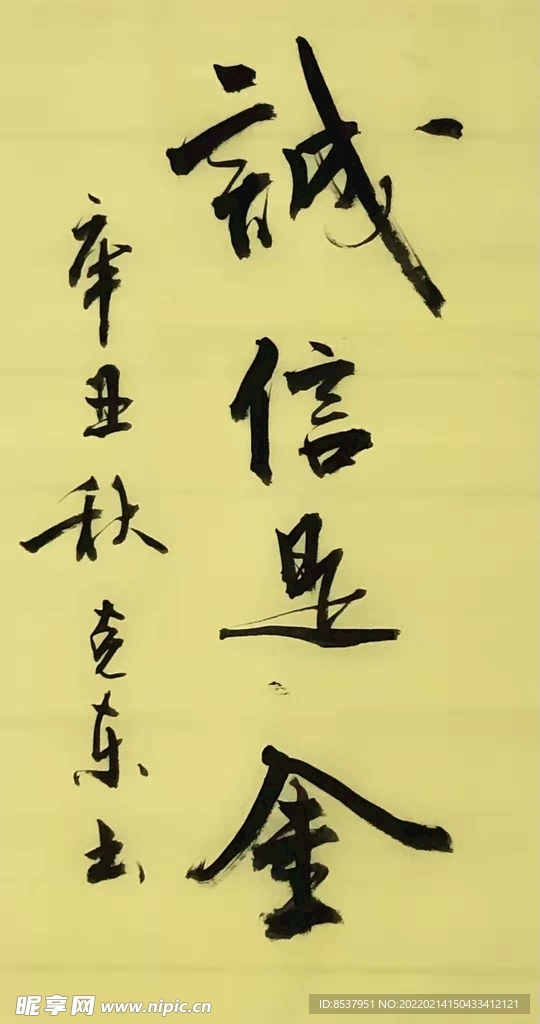 誠信是金
辛丑秋克东书
昵享网 www.nipic.cn
ID:8537951 NO:20220214150433412121